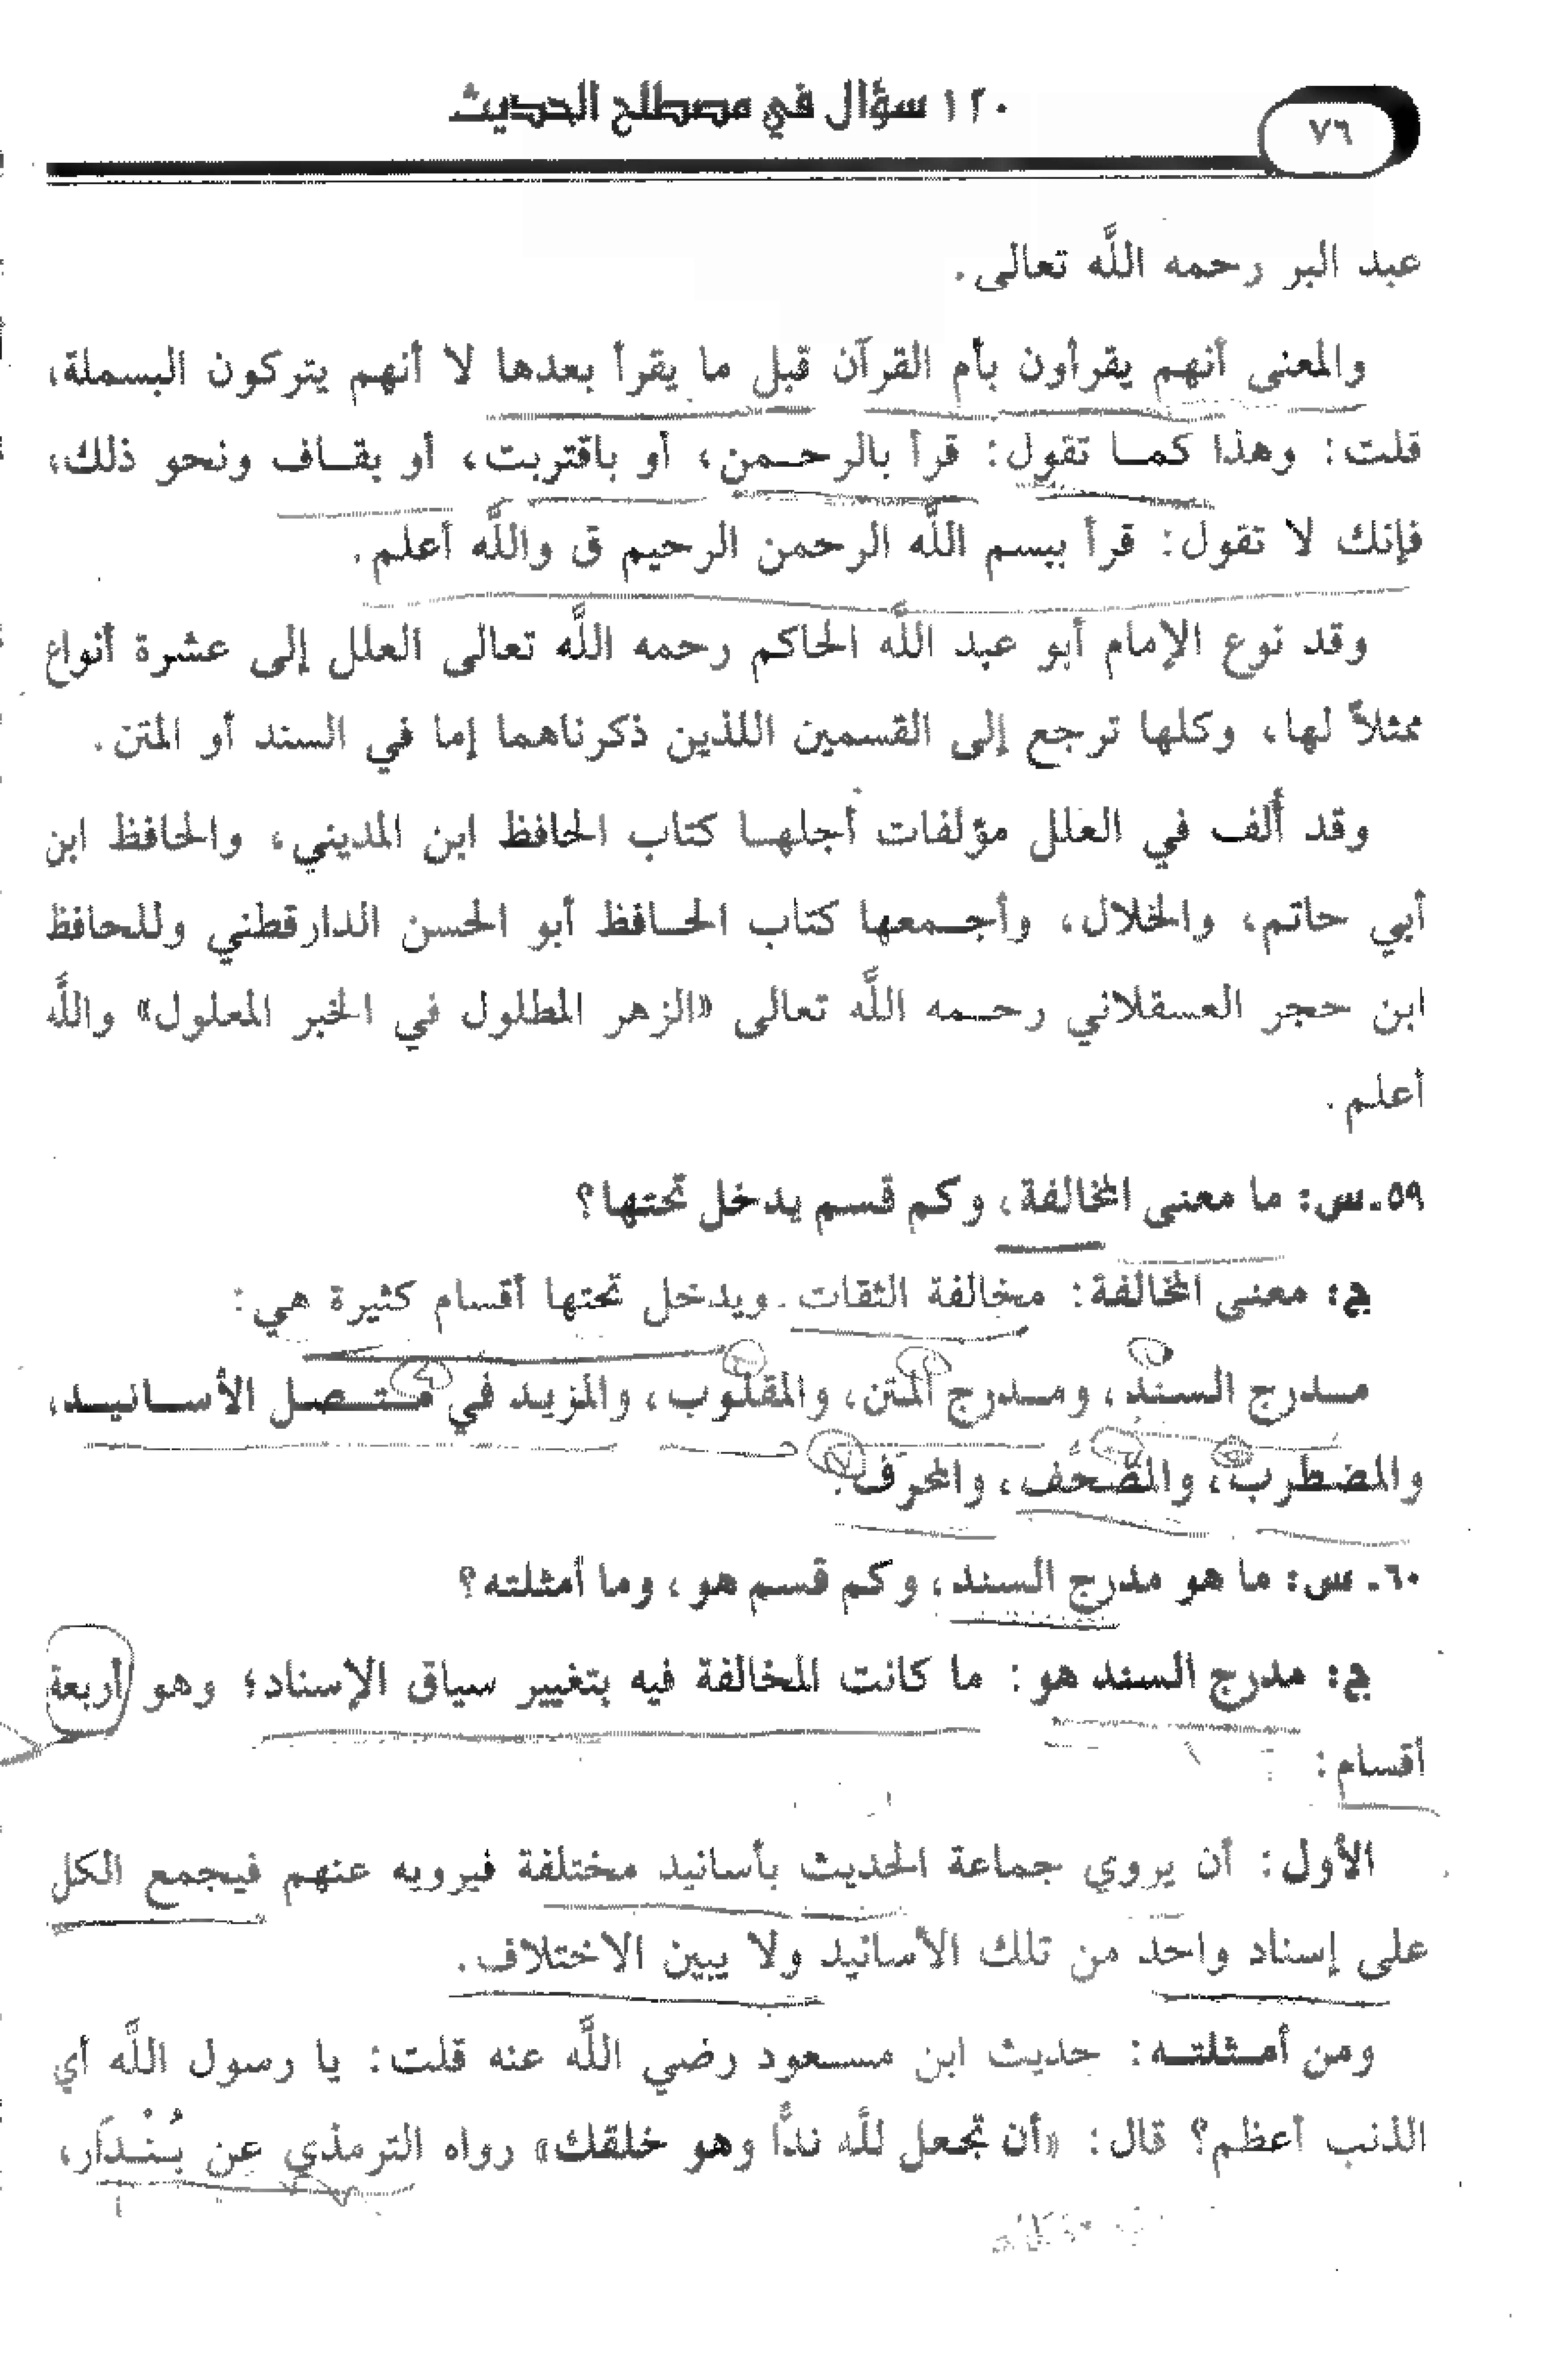 ١٢٠ سؤال في مصطلح الحديث
٧٦
عبد البر رحمه اللَّه تعالى.
والمعنى أنهم يقرأون بأم القرآن قبل ما يقرأ بعدها لا أنهم يتركون البسملة،
قلت: وهذا كما تقول: قرأ بالرحمن، أو باقتربت، أو بقاف ونحو ذلك،
فإنك لا تقول: قرأ ببسم اللَّه الرحمن الرحيم ق واللَّه أعلم.
وقد نوع الإمام أبو عبد اللَّه الحاكم رحمه اللَّه تعالى العلل إلى عشرة أنواع
ممثلاً لها، وكلها ترجع إلى القسمين اللذين ذكرناهما إما في السند أو المتن.
وقد أُلف في العلل مؤلفات أجلها كتاب الحافظ ابن المديني، والحافظ ابن
أبي حاتم، والخلال، وأجمعها كتاب الحافظ أبو الحسن الدارقطني وللحافظ
ابن حجر العسقلاني رحمه اللَّه تعالى «الزهر المطلول في الخبر المعلول» واللَّه
أعلم.
٥٩ـ س: ما معنى المخالفة، وكم قسم يدخل تحتها؟
ج: معنى المخالفة: مخالفة الثقات. ويدخل تحتها أقسام كثيرة هي:
مدرج السند، ومدرج المتن، والمقلوب، والمزيد في متصل الأسانيد،
والمضطرب، والمصَّحف، والمحرف.
٦٠ـ س: ما هو مدرج السند، وكم قسم هو، وما أمثلته؟
ج: مدرج السند هو: ما كانت المخالفة فيه بتغيير سياق الإسناد؛ وهو أربعة
أقسام:
الأول: أن يروي جماعة الحديث بأسانيد مختلفة فيرويه عنهم فيجمع الكل
على إسناد واحد من تلك الأسانيد ولا يبين الاختلاف.
ومن أمثلته: حديث ابن مسعود رضي اللَّه عنه قلت: يا رسول اللَّه أي
الذنب أعظم؟ قال: «أن تجعل للَّه ندًّا وهو خلقك» رواه الترمذي عن بُنْدَار،